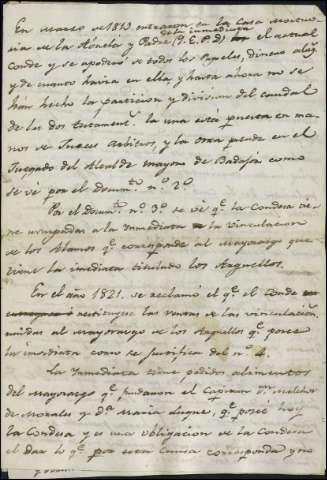 En Marzo de 1813 entraron en la Casa Mortuo
ria de la Abuela y Padre (Q.E.P.D) de la inmediata el actual
Conde y se apoderó de todos los Papeles, dinero alaj.
y de cuanto havia en ella, y hasta ahora no se
han hecho la particion y division del caudal
de los dos Testament.s la una está puesta en ma
nos de Jueces Arbitros, y la otra pende en el
Juzgado del Alcalde mayor de Badajoz como
se vé por el docum.to n.o 2.o
Por el docum.to n.o 3.o se vé q.e la Condesa tie
ne usurpadas a la inmediata la vinculacion
de los Alamos q.e corresponde al Mayorazgo que
tiene la imediata titulado los Arguellos.
En el año 1821. se reclamó el q.e el Conde
restituyese las rentas de las vinculacion.
unidas al mayorazgo de los Arguellos q.e posee
la imediata como se justifica del n.o 4.
La inmediata tiene pedidos alimentos
del Mayorazgo q.e fundaron el Capitan D.n Melchor
de Morales y D.a Maria Luque, q.e posee hoy
la Condesa y es una obligacion de la Condesa
el dar lo q.e por esta Causa corresponda y no